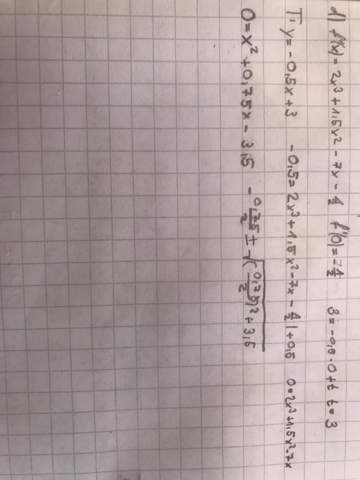 d) f'(x) = 2x³ + 1,5x² - 7x - ½ f'(0) = -½ 3 = -0,5 · 0 + t t = 3
T: y = -0,5x + 3 -0,5 = 2x³ + 1,5x² - 7x - ½ | + 0,5 0 = 2x³ + 1,5x² - 7x
0 = x² + 0,75x - 3,5 - 0,75/2 ± √(0,75/2)² + 3,5